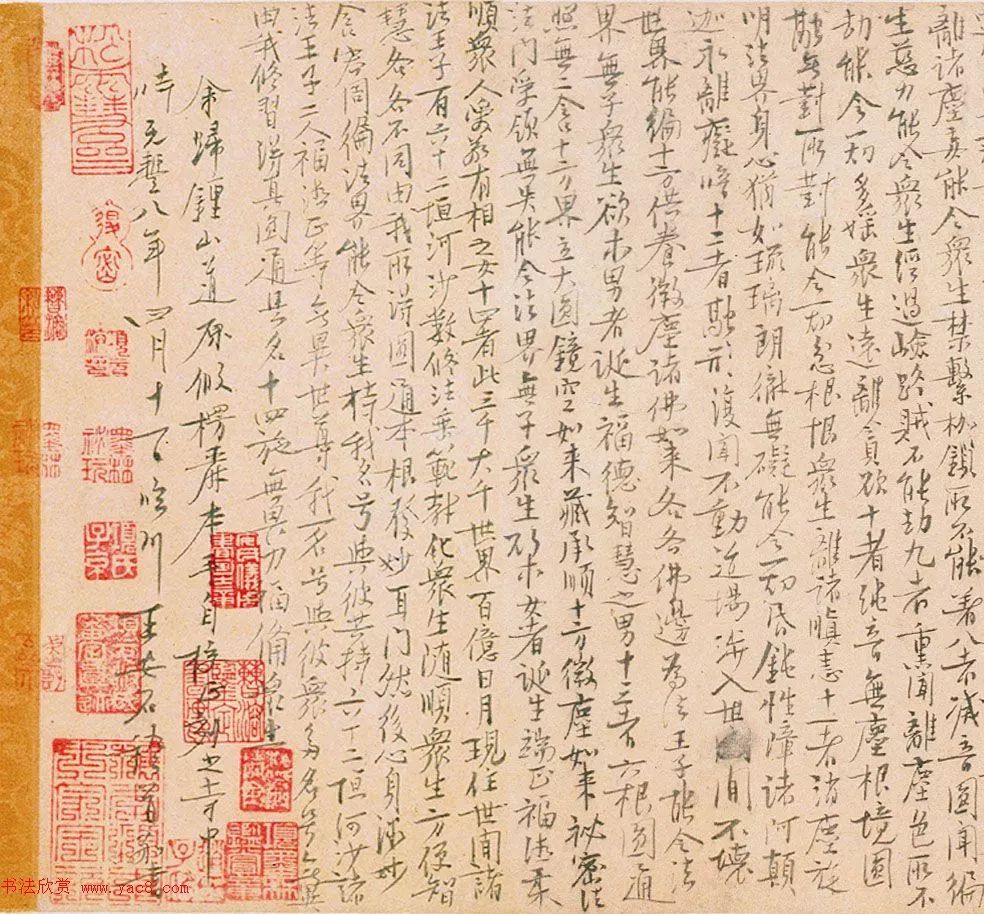 離諸塵妄能令眾生禁繫枷鎖所不能著八者滅音圓聞徧
生慈力能令眾生經過嶮路賊不能劫九者熏聞離塵色所不
劫能令一切多婬眾生遠離貪欲十者純音無塵根境圓
融無對所對能令一切忿恨眾生離諸瞋恚十一者消塵旋
明法界身心猶如琉璃朗徹無礙能令一切昏鈍性障諸阿顛
迦永離癡暗十二者融形復聞不動道場涉入世間不壞
世界能徧十方供養微塵諸佛如來各各佛邊為法王子能令法
界無子眾生欲求男者誕生福德智慧之男十三者六根圓通
照無二含十方界立大圓鏡空如來藏承順十方微塵如來祕密法
門受領無失能令法界無子眾生欲求女者誕生端正福德柔
順眾人愛敬有相之女十四者此三千大千世界百億日月現住世間諸
法王子有六十二恒河沙數修法垂範教化眾生隨順眾生方便智
慧各各不同由我所得圓通本根發妙耳門然後心身微妙
含容周徧法界能令眾生持我名号與彼共持六十二恒河沙諸
法王子二人福德正等無異世尊我一名号與彼眾多名号無異
由我修習得真圓通是名十四施無畏力福備眾生
余歸鍾山道原假楞嚴本手自校正刻之寺中
時元豐八年四月十一日臨川王安石稽首敬書
項氏子京
墨林秘玩
书法欣赏 www.yac8.com